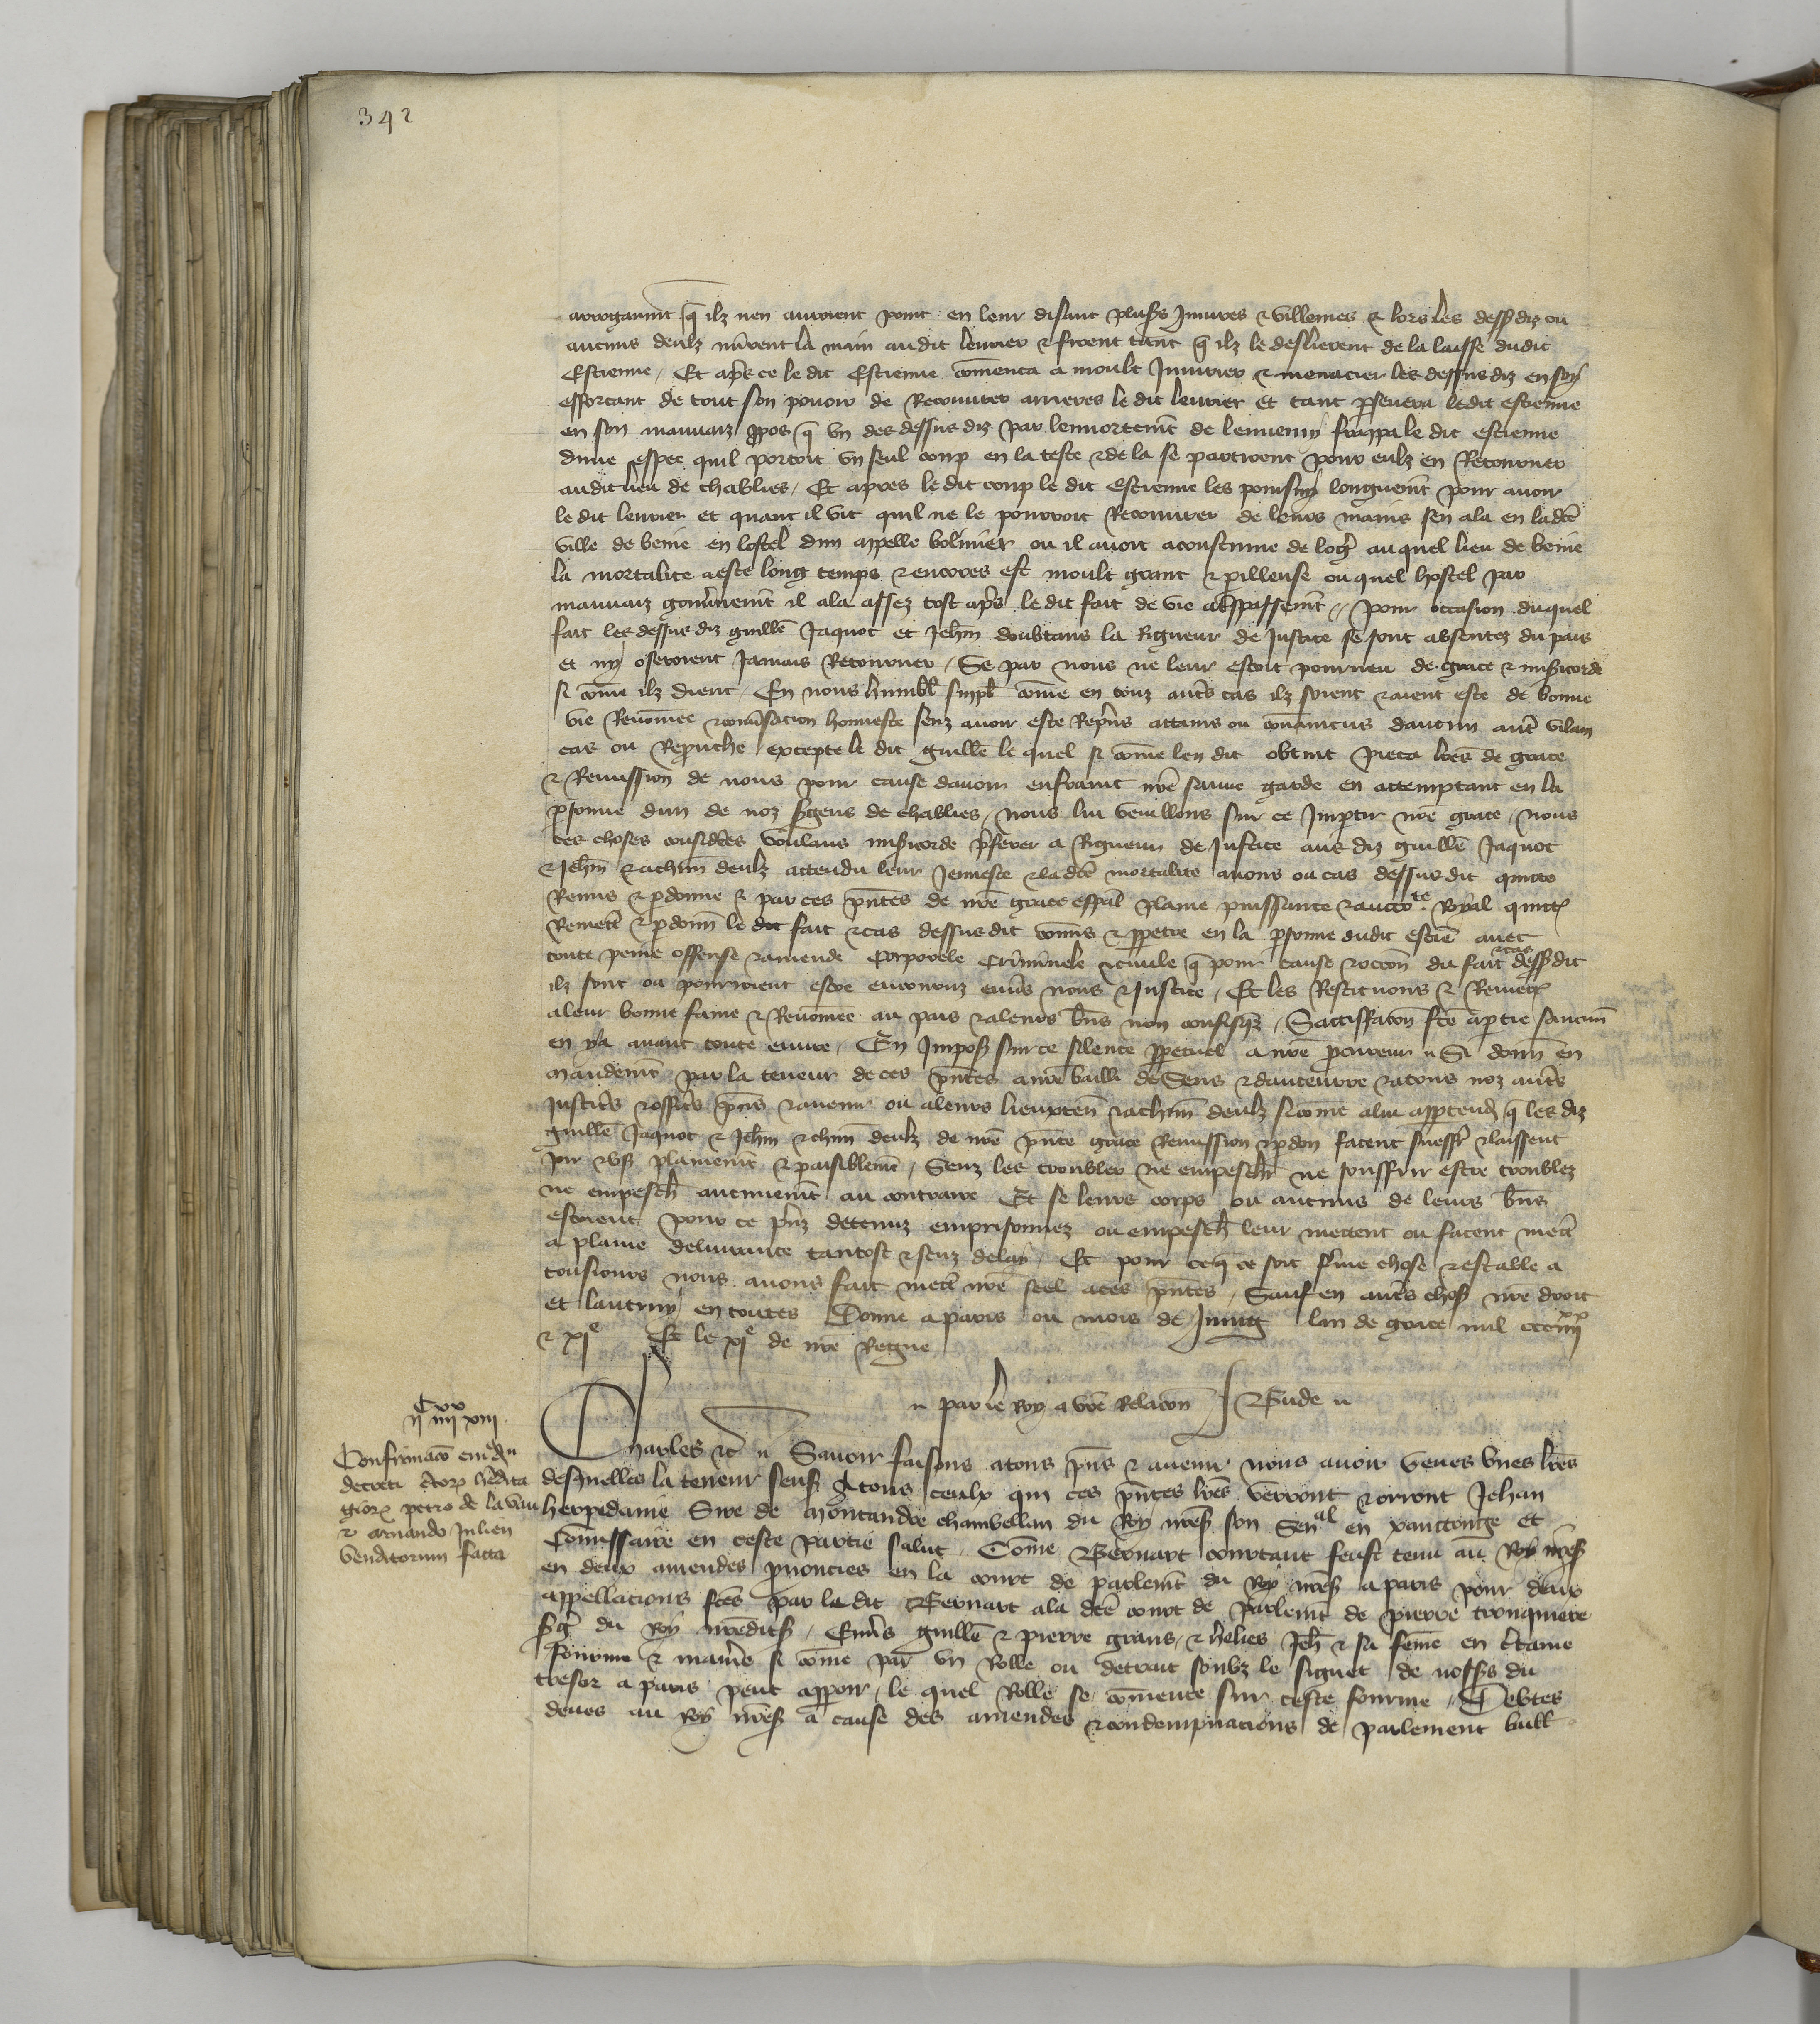 342
arrogaument q̃ ilz nen auroient point en leur disant plus̃s Iniures & villenies & lors les dess̃diz ou
aucuns deulz mirent la main audit leurier & firent tant q̃ ilz le deslierent de la laisse dudit
Estienne / Et ap̃s ce le dit Estienne com̃enca a moult Iniurier & menacier les dessusdiz en soy
efforcant de tout son pouoir de Recouurer arrieres le dit leurier et tant p̃seuera ledit estienne
en son mauuaiz p̃pos q̃ vn des dessusdiz par lennortem̃t de lennemy frappa le dit estienne
dune espee quil portoit vn seul coup en la teste & de la se partirent pour eulz en Retourner
audit lieu de chablies / Et apres le dit coup le dit Estienne les poursuy longuem̃t pour auoir
le dit leurier et quant il vit quil ne le pourroit Recouurer de leurs mains sen ala en ladc̃e
ville de beine en lostel dun appelle bolinier ou il auoit acoustume de log̃ auquel lieu de beine
la mortalite a este long temps & encores est moult grant & p̃illeuse ouquel hostel par
mauuaiz gouũnem̃t il ala assez tost ap̃s le dit fait de vie a t̃spassem̃t // pour occasion duquel
fait les dessusdiz guill̃e Jaquot et Jeh̃m doubtans la Rigueur de Justice se sont absentez du pais
et ny oseroient Jamais Retourner / Se par nous ne leur estoit pourueu de grace & mis̃icorde
si com̃e ilz dient / En nous humbl̃ suppl̃ com̃e en touz aut̃s cas ilz soient & aient este de bonne
vie Renom̃ee & conũsacion honneste senz auoir este Rep̃ns attains ou conuaincus daucun aut̃ vilain
cas ou Reprouche excepte le dit guill̃e le quel si com̃e len dit obtint pieca lr̃es de grace
& Remission de nous pour cause dauoir enfraint nr̃e sauue garde en attemptant en la
p̃sonne dun de noz s̃gens de chablies / nous lui veuillons sur ce Imp̃tir nr̃e grace / nous
ces choses consid̃ees voulans mis̃icorde p̃ferer a Rigueur de Justice aus diz guill̃e Jaquot
& Jeh̃m & a chm̃ deulz attendu leur Jennesse & la dc̃e mortalite auons ou cas dessusdit quitte
Remis & p̃donne & par ces p̃ntes de nr̃e grace esp̃al plaine puissance & auctor̃te Royal quitt̃
Remett̃ & p̃donn̄ le dit fait & cas dessusdit com̃is & p̃petre en la p̃sonne dudit estien̄ auec
toute peine offense & amende Corporele Criminele & ciuile q̃ pour cause & occõn du fait & cas dess̃dit
ilz sont ou pourroient estre encouruz enũs nous & Justice / Et les Restituons & Remett̃
a leur bonne fame & Renom̃ee au pais & a leurs b̃ns non confisq̃z / Sattisfacõn fc̃e a p̃tie
en p̃la auant toute euure / En Impos̃ sur ce silence p̃petuel a nr̃e p̃cureur // Si donn̄ en
mandem̃t par la teneur de ces p̃ntes a nr̃e bailli de Sens & dauceurre & a touz noz aut̃s
Justic̃s & offic̃s p̃ns & auenir ou a leurs lieuxten̄ & a chm̃ deulz si com̃e a lui apptend̃ q̃ les diz
guill̃e Jaquot & Jeh̃m & chm̃ deulz de nr̃e p̃nte grace Remission & p̃don facent sueff̃r & laissent
Joir & vs̃ plainem̃t & paisiblem̃t / Senz les troubler ne empesch̃r ne souffrir estre troublez
ne empesch̃ aucunem̃t au contraire Et se leurs corps ou aucuns de leurs b̃ns
estoient pour ce p̃ns detenuz emprisonnez ou empesch̃ leur mettent ou facent mett̃
a plaine deliurance tantost & senz delay / Et pour ceq̃ ce soit ferme chose & estable a
tousiours nous auons fait mett̃ nr̃e seel a ces p̃ntes / Sauf en aut̃s chos̃ nr̃e droit
et lautruy en toutes Donn̄ a paris ou mois de Juing lan de grace mil ccc iiij xx
& xi e Et le xi e de nr̃e Regne
// par le Roy a vr̃e Relacõn J Bude //
ii iiii xiii
Confirmacõ cuiusd̃
decreti
petro de la
& arnaudo Julien
venditorum facta
Charles &c̃ // Sauoir faisons a tous p̃ns & auenir nous auoir veues vnes lr̃es
desquelles la teneur sens̃ A tous ceulx qui ces p̃ntes lr̃es verront & orront Jehan
herpedanne Sire de Montandre chambellan du Roy nr̃es̃ son Sen̄al en xanctonge et
Com̃issaire en ceste partie salut / Com̃e Bernart courtaut feust tenu au Roy nr̃es̃
en deux amendes p̃noncies en la court de parlem̃t du Roy nr̃es̃ a paris pour deux
appellacions fc̃es par le dit Bernart a la dc̃e court de parlem̃t de pierre tronquiere
s̃g̃ du Roy nr̃edits̃ / Enũs guill̃e & pierre grans / & helies Jeh̃ & sa fem̃e en c̃taine
fourme & maniẽ si com̃e par vn Rolle ou detrait soubz le signet de noss̃s du
tresor a paris peut apparoir / le quel Rolle se com̃ence sur ceste fourme / Debtes
deues au Roy nr̃es̃ a cause des amendes & condempnacions de parlement baill̃